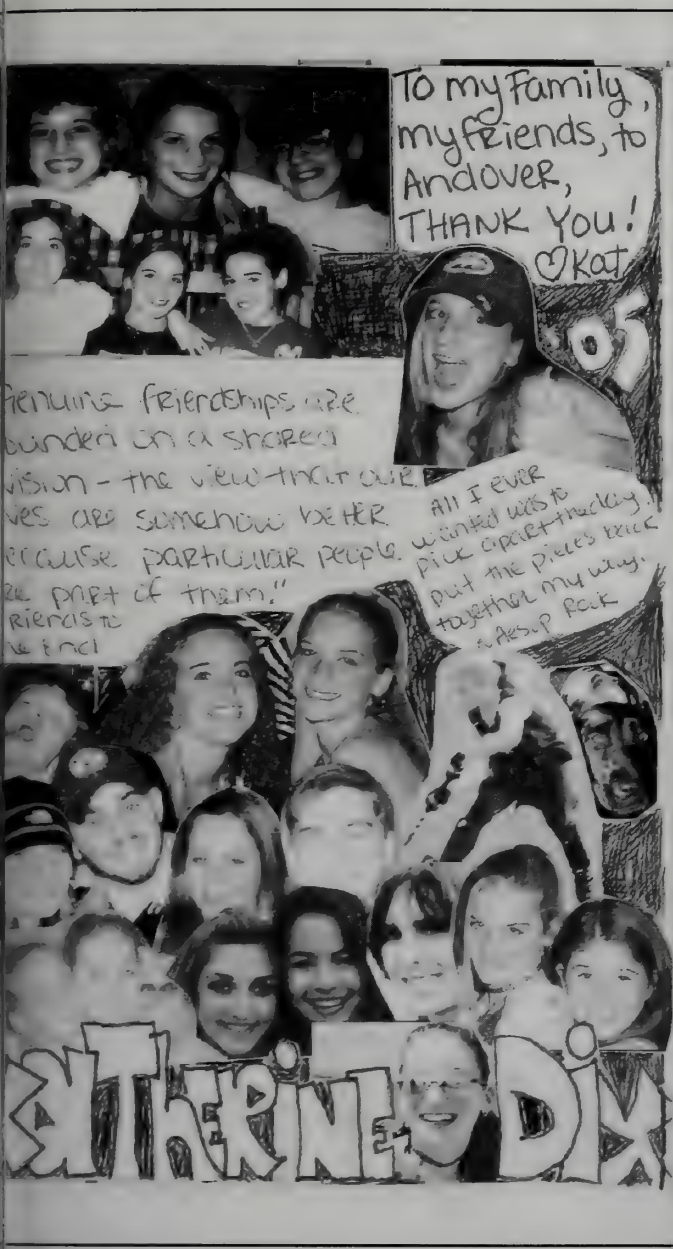 To my Family,
my friends, to
Andover,
THANK YOU!
♡Kat
'05
Genuine friendships are
ounded on a shared
vision - the view that our
ves are somehow better
ecause particular people
re part of them."
Friends to
he End
All I ever
wanted was to
pick apart the day
put the pieces back
together my way.
~ Aesop Rock
KATHERINE DIX